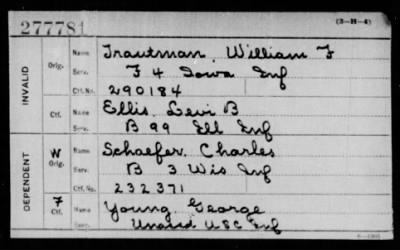 277781
(3-H-4)
INVALID
Orig.
Name Trautman, William F
Serv. F 4 Iowa Inf
Ctf. No. 290184
Ctf.
Name Ellis, Levi B
Serv. B 99 Ill Inf
DEPENDENT
W
Orig.
Name Schaefer, Charles
Serv. B 3 Wis Inf
Ctf. No. 232371
7
Ctf.
Name Young George
Serv. USC Inf